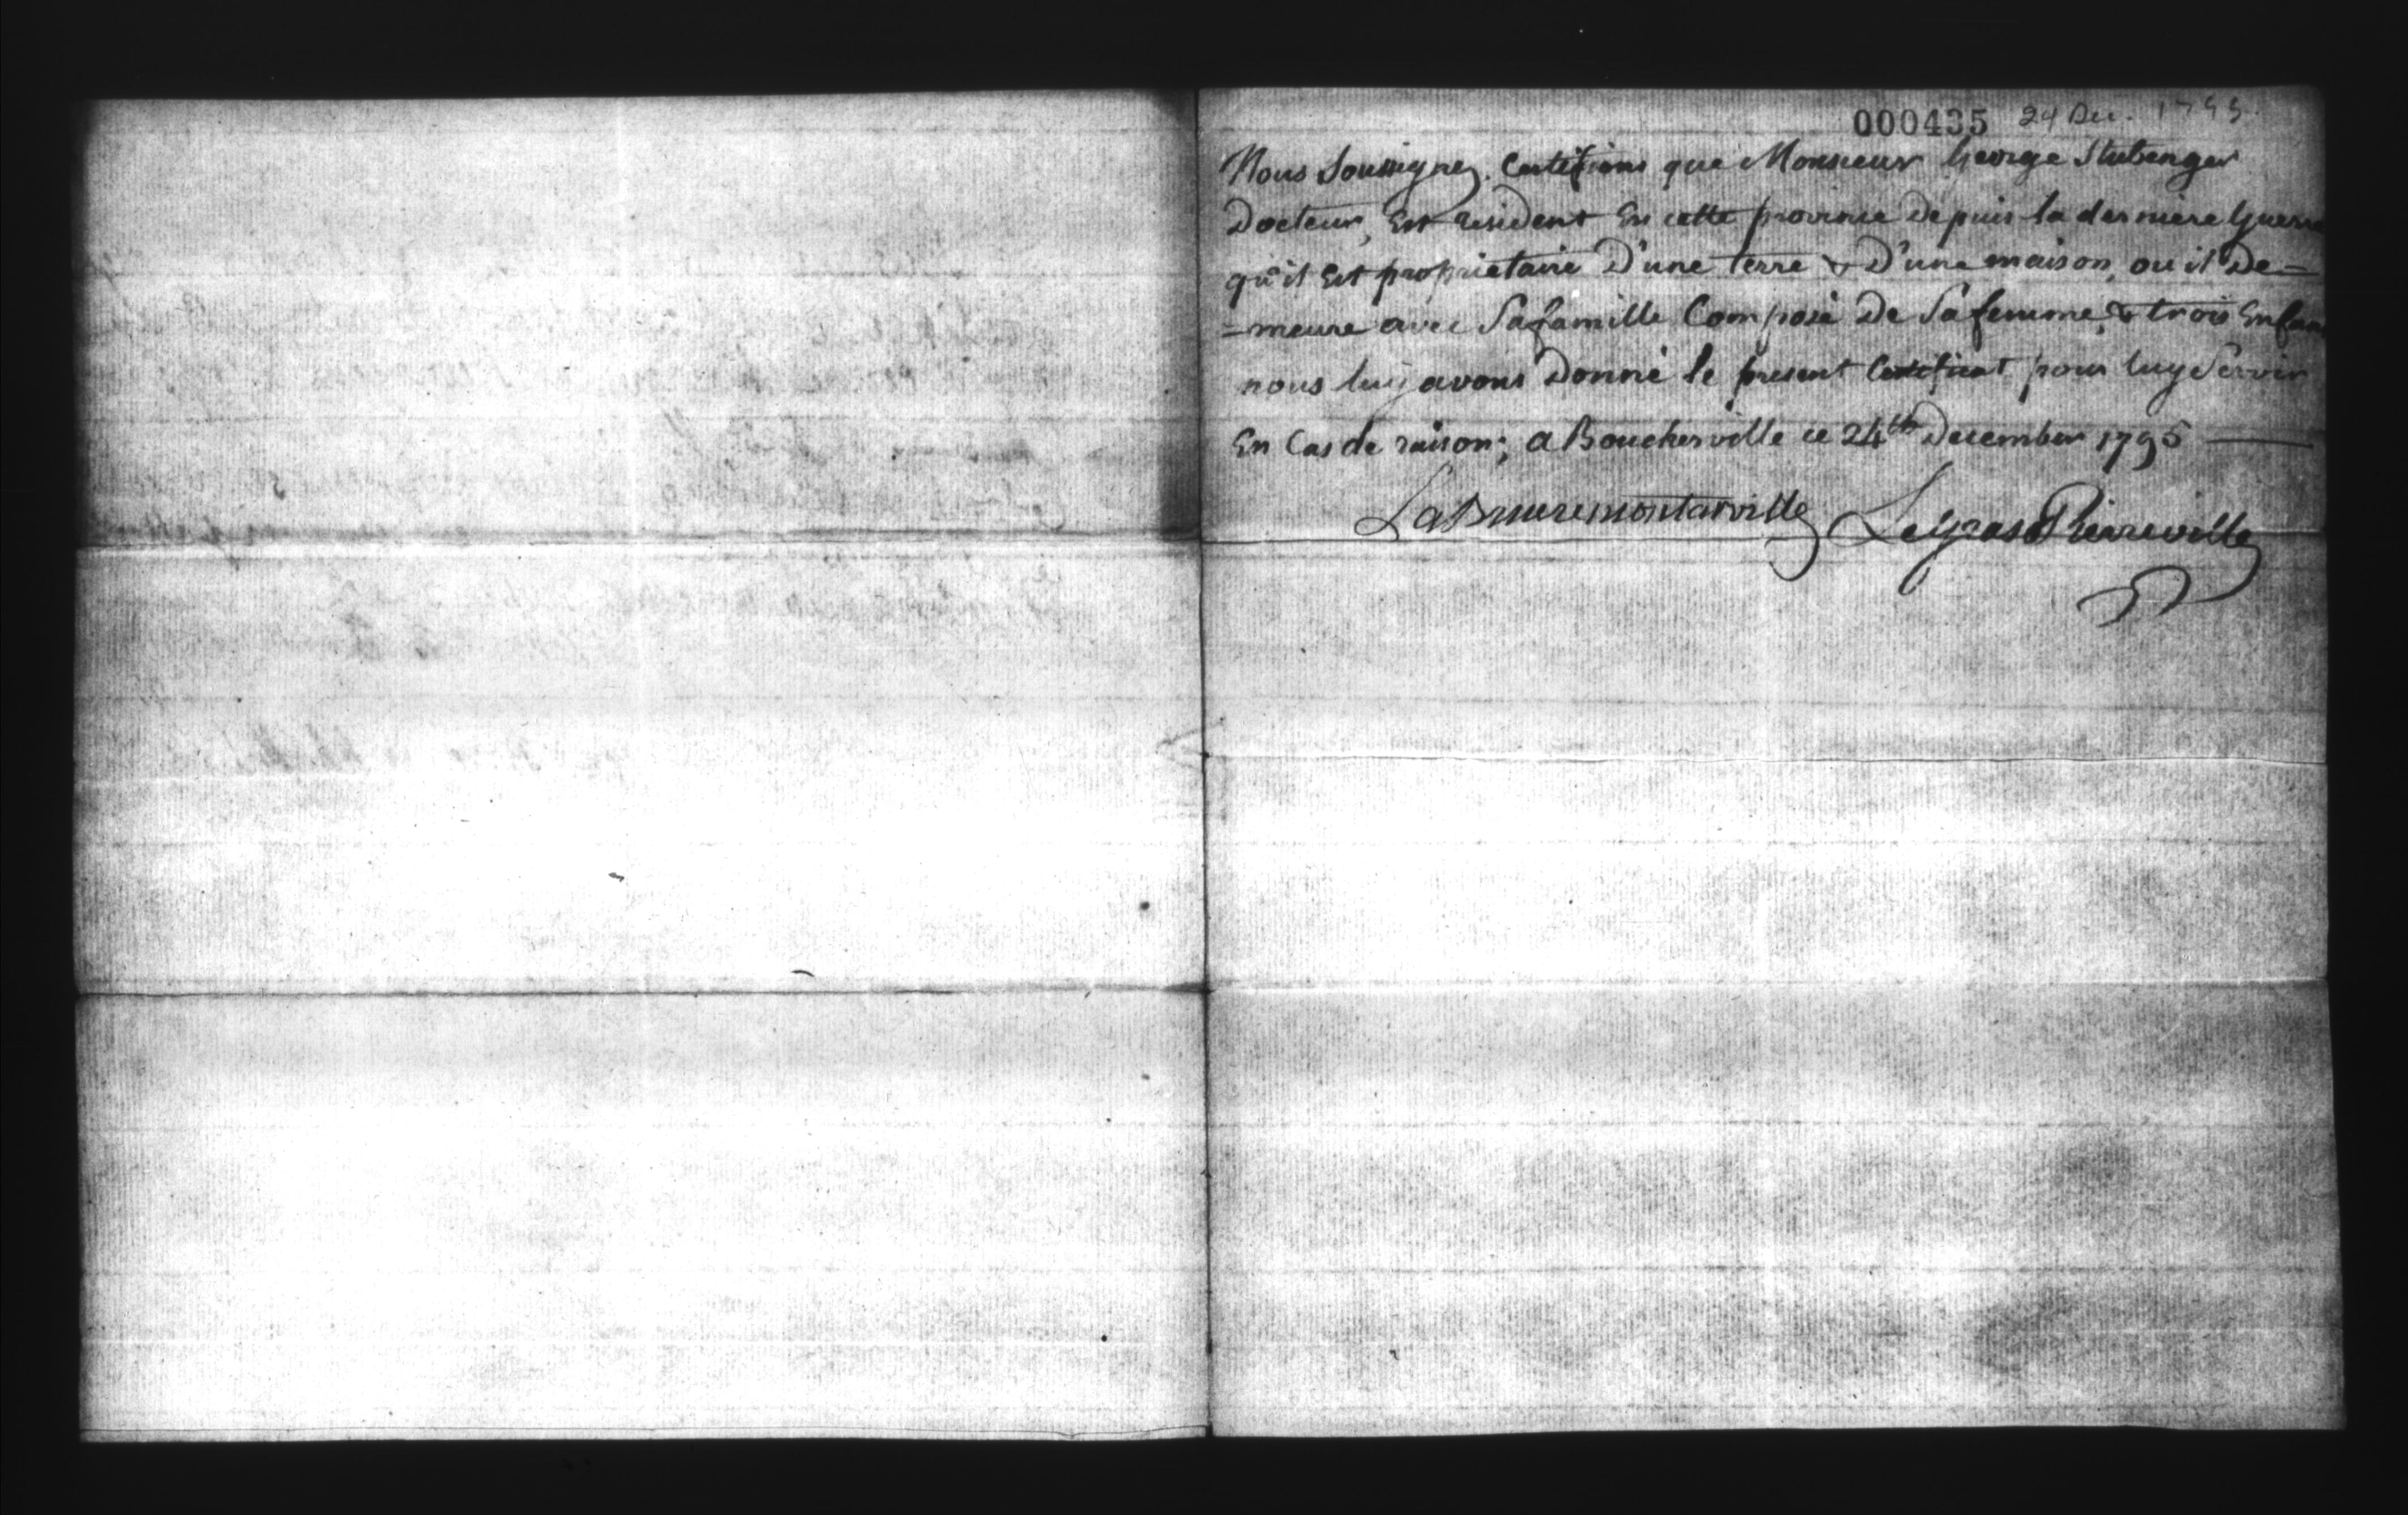 000435 24 Dec. 1795.
Nous Soussignez. Certifions que Monsieur George Stubenger
Docteur, Est resident En cette province Depuis la derniere Guerre
qu'il Est proprietaire D'une terre & D'une maison, ou il De=
=meure avec Sa famille Composé De Sa femme, & trois Enfan
nous luy avons Donné le present Certificat pour luy Servir
En Cas de raison; a Boucherville ce 24th December 1795
LaBruere montarville Legras Pierreville